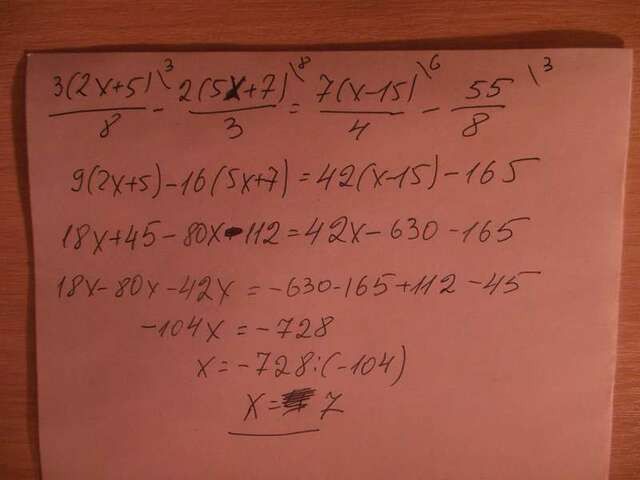 3(2x+5)\3/8 - 2(5x+7)\8/3 = 7(x-15)\6/4 - 55\3/8
9(2x+5)-16(5x+7)=42(x-15)-165
18x+45-80x-112=42x-630-165
18x-80x-42x=-630-165+112-45
-104x=-728
x=-728:(-104)
x=7